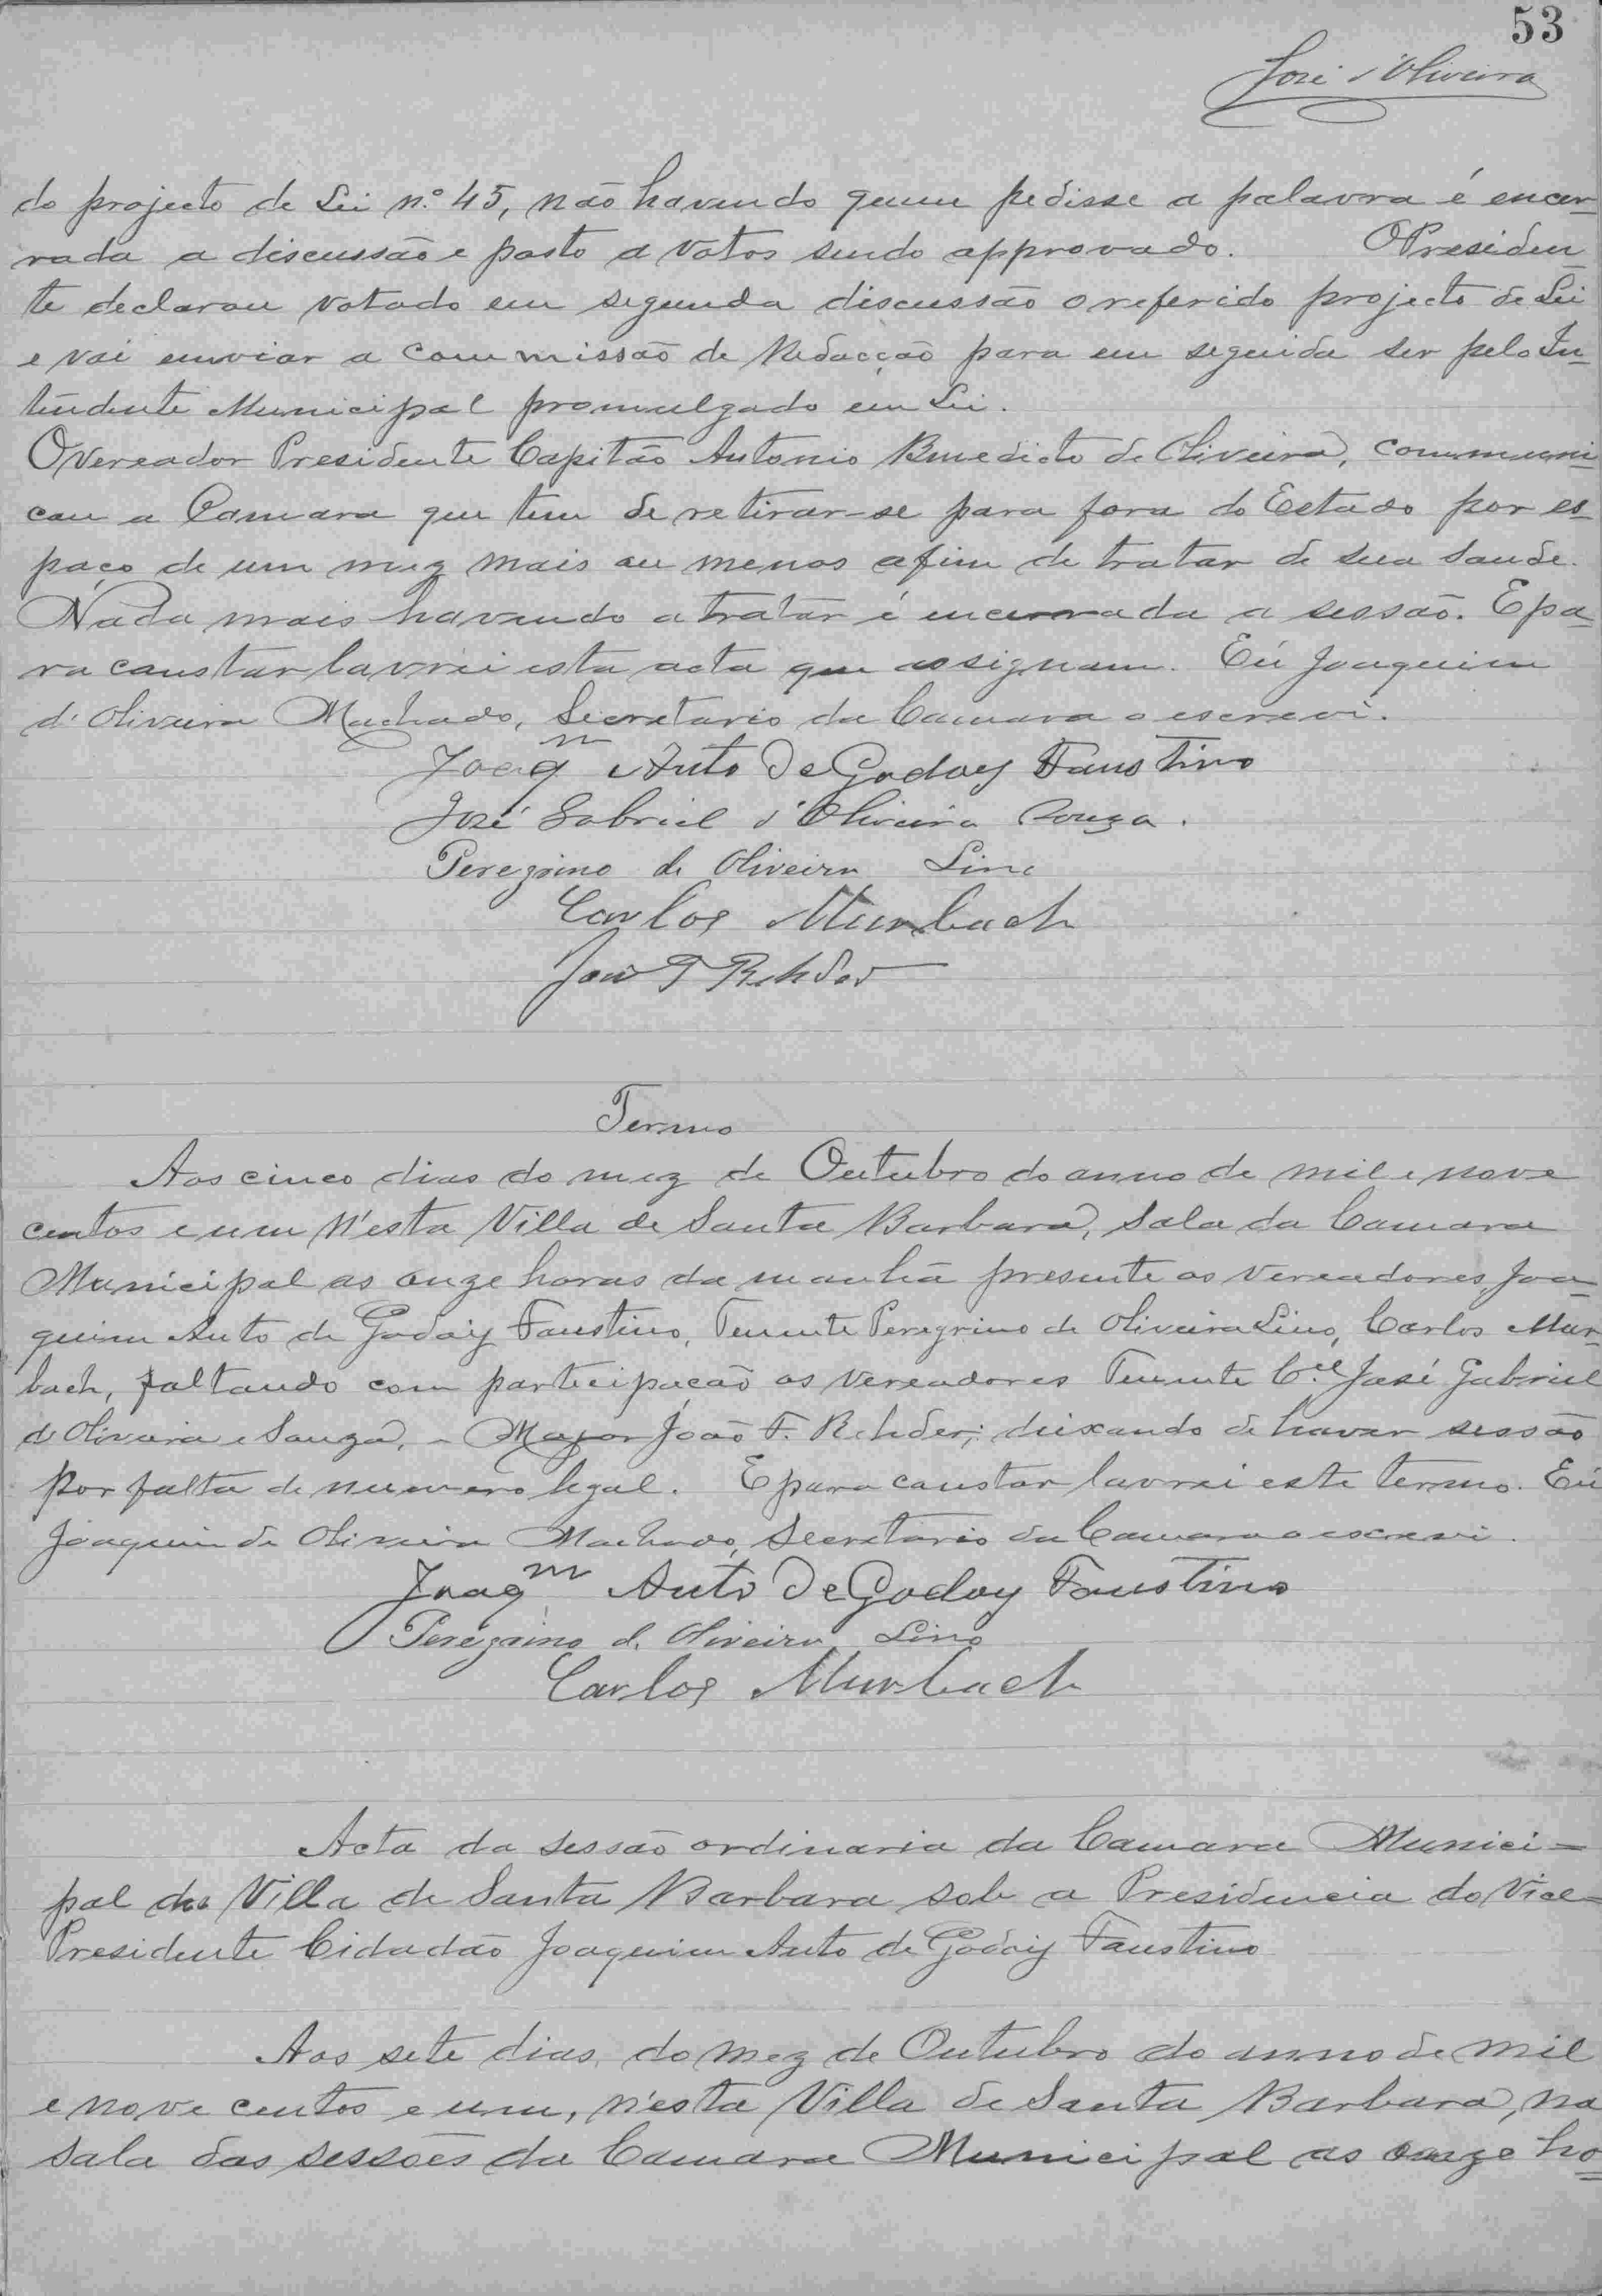 53
José d'Oliveira
do projecto de Lei n.º 45, não havendo quem pedisse a palavra é encer-
rada a discussão e posto a votos sendo approvado. O Presiden-
te declarou votado em segunda discussão o referido projecto de Lei
e vai enviar a commissão de Redacção para em seguida ser pelo In-
tendente Municipal promulgado em Lei.
O Vereador Presidente Capitão Antonio Benedicto de Oliveira, communi-
cou a Camara que tem de retirar-se para fora do Estado por es-
paço de um mez mais ou menos afim de tratar de sua saude.
Nada mais havendo a tratar é encerrada a sessão. E pa-
ra constar lavrei esta acta que assignam. Eú Joaquim
d'Oliveira Machado, Secretario da Camara o escrevi.
Joaqm Auto de Godoy Faustino
José Gabriel d'Oliveira Souza.
Peregrino de Oliveira Lino
Carlos Murbach
João F Rehder
Termo
Aos cinco dias do mez de Outubro do anno de mil e nove
centos e um n'esta Villa de Santa Barbara, sala da Camara
Municipal as onze horas da manhã presente os Vereadores Joa-
quim Auto de Godoy Faustino, Tenente Peregrino de Oliveira Lino, Carlos Mur-
bach, faltando com participação os Vereadores Tenente Cel. José Gabriel
d'Oliveira e Souza, - Major João F. Rehder; deixando de haver sessão
por falta de numero legal. E para constar lavrei este termo. Eú
Joaquim de Oliveira Machado, Secretario da Camara o escrevi.
Joaqm Auto de Godoy Faustino
Peregrino de Oliveira Lino
Carlos Murbach
Acta da sessão ordinaria da Camara Munici=
pal da Villa de Santa Barbara sob a Presidencia do Vice=
Presidente Cidadão Joaquim Auto de Godoy Faustino
Aos sete dias do mez de Outubro do anno de mil
e nove centos e um, n'esta Villa de Santa Barbara, na
sala das sessões da Camara Municipal as onze ho=